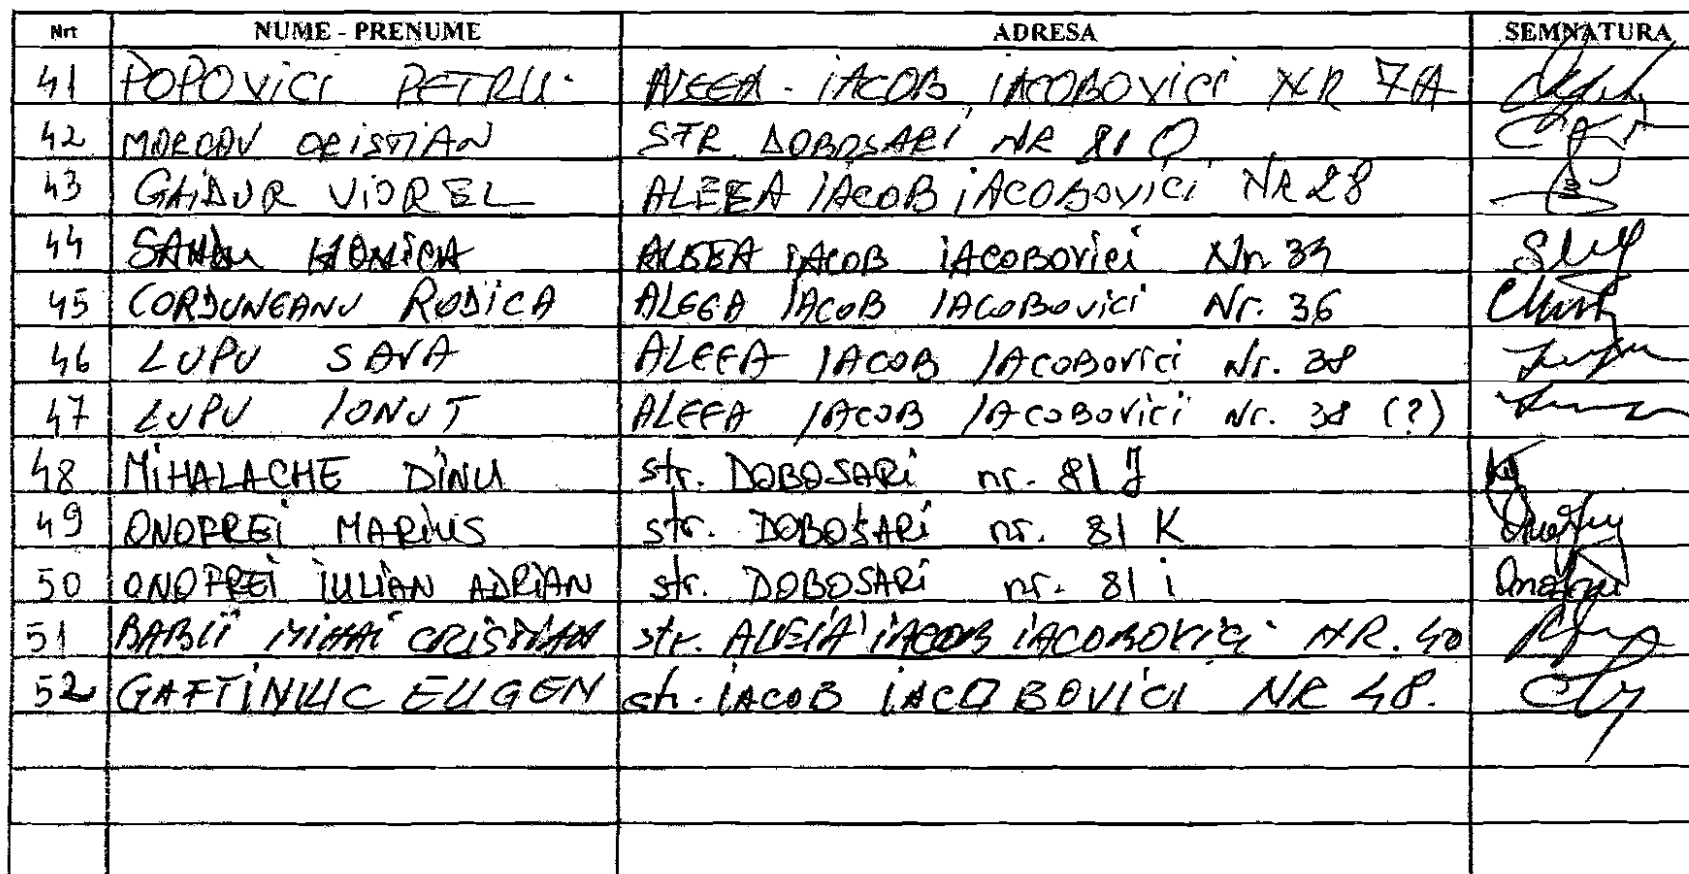 Nrt NUME - PRENUME ADRESA SEMNATURA
41 POPOVICI PETRU ALEEA - IACOB IACOBOVICI NR 7A
42 CRISTIAN STR DOBOSARI NR 81 Q
43 GAIDUR VIOREL ALEEA IACOB IACOBOVICI NR 28
44 SANDU MONICA ALEEA IACOB IACOBOVICI Nr. 34
45 CORDUNEANU RODICA ALEEA IACOB IACOBOVICI Nr. 36
46 LUPU SAVA ALEEA IACOB IACOBOVICI Nr. 38
47 LUPU IONUT ALEEA IACOB IACOBOVICI Nr. 38 (?)
48 MIHALACHE DINU str. DOBOSARI nr. 81 J
49 ONOFREI MARIUS str. DOBOSARI nr. 81 K
50 ONOFREI IULIAN ADRIAN str. DOBOSARI nr. 81 i
51 BABLII MIHAI CRISTIAN str. ALEIA IACOB IACOBOVICI NR. 40
52 GAFTINIUC EUGEN str. IACOB IACOBOVICI NR 48.